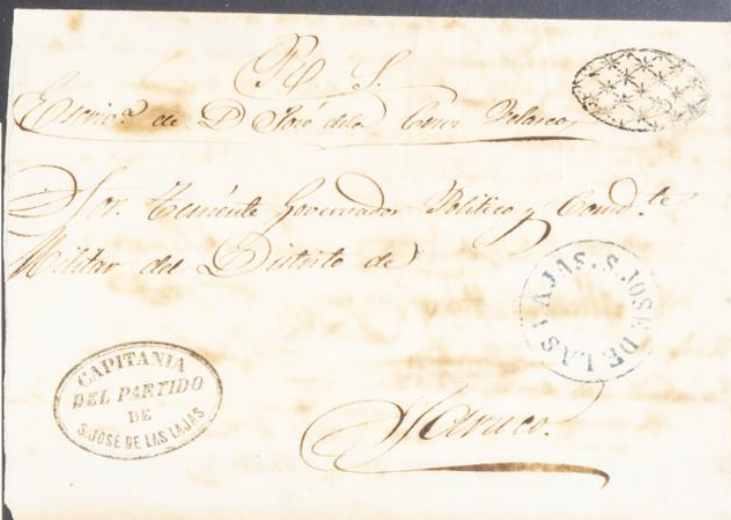 R. S.
Escriv.ª de D José de la Cruz Velasco
Sor. Teniente Governador Politico y Comd.te
Militar del Distrito de
Jaruco.
S. JOSE DE LAS LAJAS.
CAPITANIA
DEL PARTIDO
DE
S. JOSÉ DE LAS LAJAS